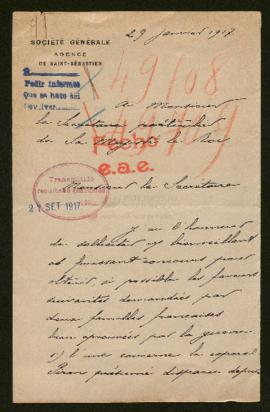 29 janvier 1917.
SOCIÉTÉ GÉNÉRALE
AGENCE
DE SAINT-SÉBASTIEN
Pedir informes
Que se hace así
A Monsieur
le Secrétaire particulier
de Sa Majesté le Roi
Fecho
e.a.e.
Monsieur le Secrétaire
Transmitido
21 SET 1917
J'ai l'honneur
de solliciter votre bienveillant
et puissant concours pour
obtenir, si possible les faveurs
suivantes demandées par
deux familles françaises
bien éprouvées par la guerre.
1) l'une concerne le caporal
disparu depuis